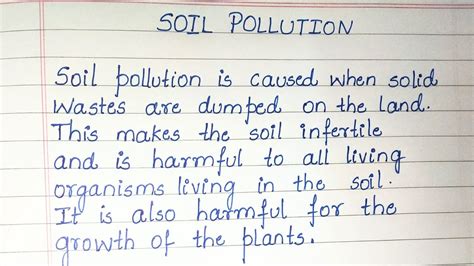 SOIL POLLUTION
Soil pollution is caused when solid
wastes are dumped on the land.
This makes the soil infertile
and is harmful to all living
organisms living in the soil.
It is also harmful for the
growth of the plants.